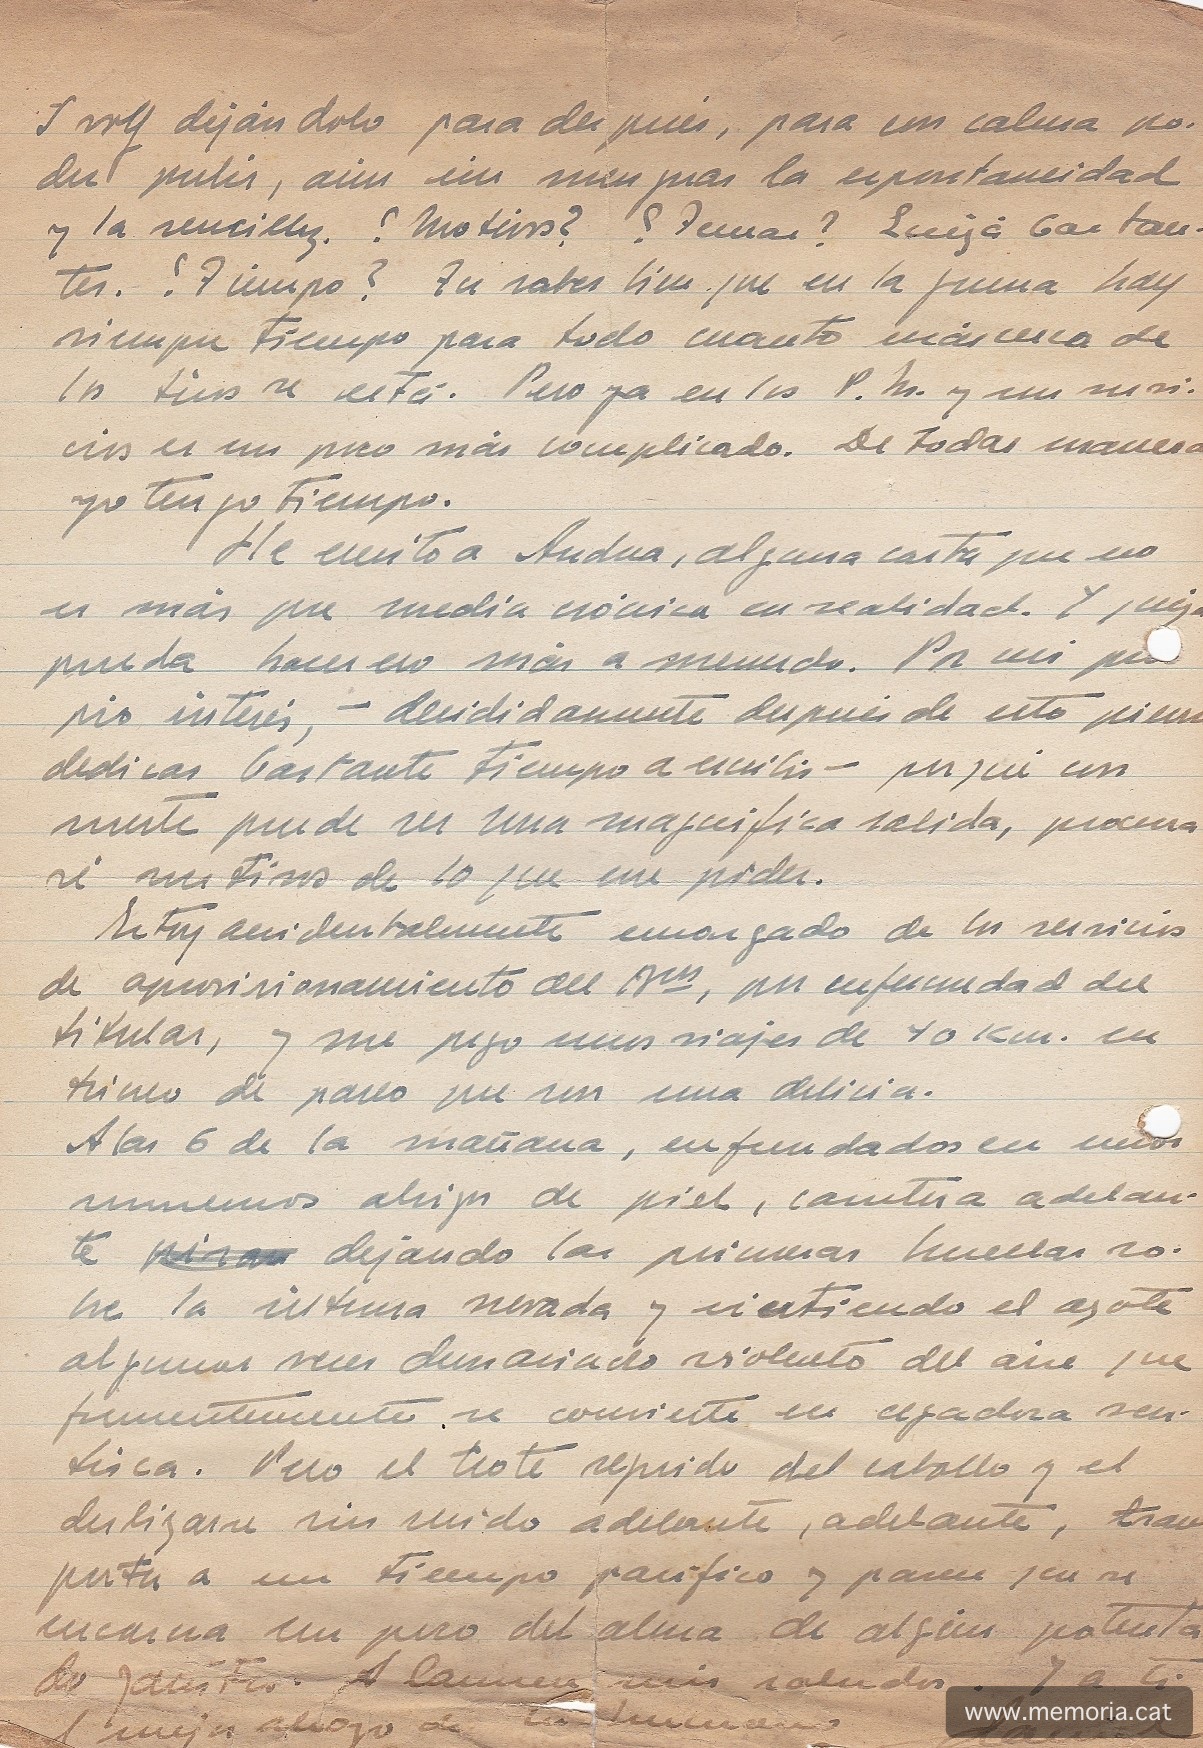 I voy dejándolo para después, para con calma po-
der pulir, aun sin menguar la espontaneidad
y la sencillez. ¿Motivos? ¿Temas? Quizá bastan-
tes. ¿Tiempo? Tu sabes bien que en la guerra hay
siempre tiempo para todo cuanto más cerca de
los tiros se está. Pero ya en las P. M. y en servi-
cios es un poco más complicado. De todas maneras
yo tengo tiempo.
He escrito a Andrea, alguna carta que no
es más que media crónica en realidad. Y quizá
pueda hacerlo más a menudo. Por mi pro
pio interés, - decididamente después de esto pienso
dedicar bastante tiempo a escribir - porque con
suerte puede ser una magnífica salida, procura
ré meteros de lo que me pides.
Estoy accidentalmente encargado de los servicios
de aprovisionamiento del Bon, por enfermedad del
titular, y me pego unos viajes de 40 Km. en
trineo de paseo que son una delicia.
A las 6 de la mañana, enfundados en unos
inmensos abrigos de piel, carretera adelan-
te dejando las primeras huellas so-
bre la última nevada y sintiendo el azote
algunas veces demasiado violento del aire que
frecuentemente se convierte en cegadora ven-
tisca. Pero el trote seguido del caballo y el
deslizarse sin ruido adelante, adelante, trans
porta a un tiempo pacífico y parece que se
encarna un poco del alma de algún potenta
do zarista. A Carmen mis saludos. Y a ti
el mejor abrazo de tu hermano
www.memoria.cat